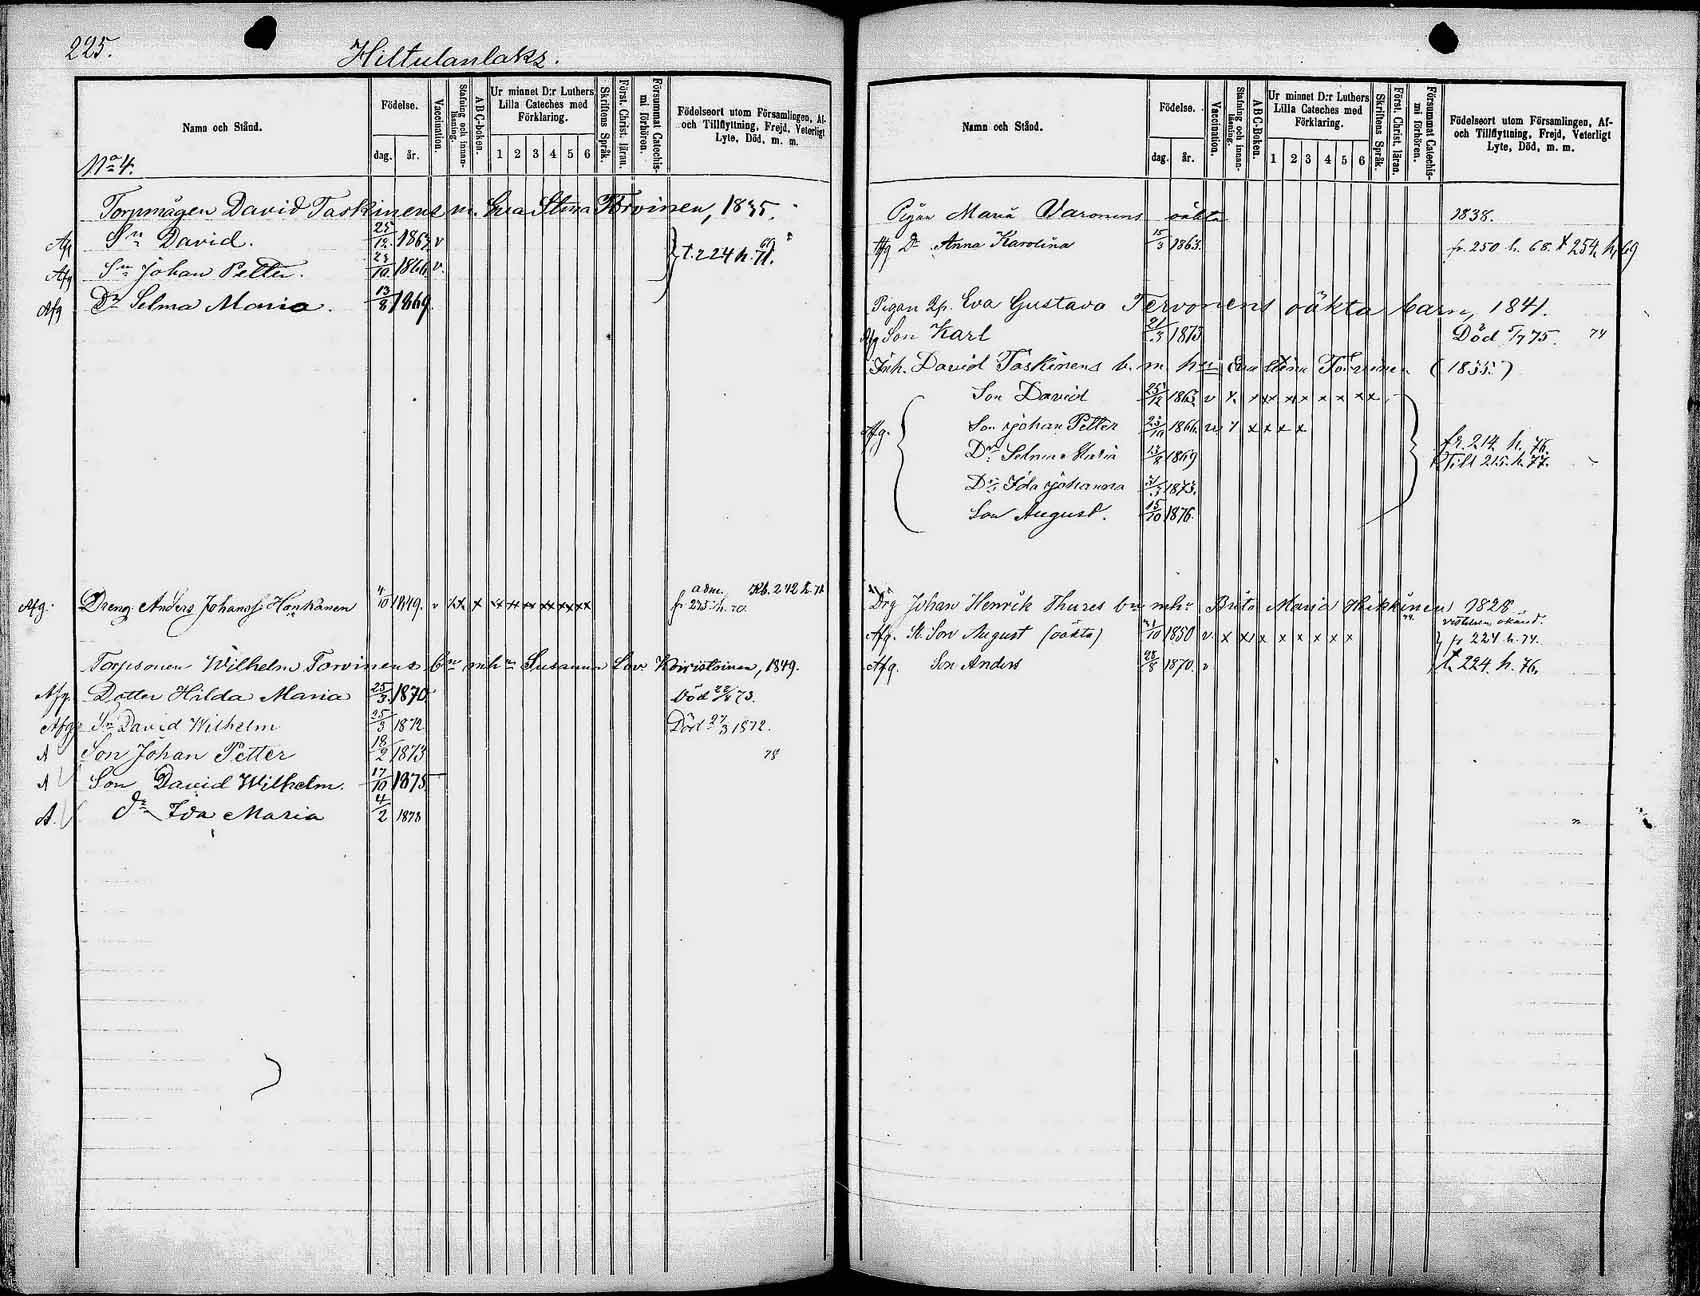 225.
Hiltulanlaks.
Namn och Stånd.
Födelse.
dag. år.
Vaccination.
Stafning och innanläsning.
ABC-boken.
Ur minnet D:r Luthers Lilla Cateches med Förklaring.
1 2 3 4 5 6
Skriftens Språk.
Först. Christ. läran.
Försummat Catechismi förhören.
Födelseort utom Församlingen, Af- och Tillflyttning, Frejd, Veterligt Lyte, Död, m. m.
No 4.
Torpmågen David Taskinens m. Eva Stina Torvinen, 1835.
Afg Sn David. 25/12 1863 v
Afg Sn Johan Petter. 23/10 1866 v. t. 224 h. 71.
Afg Dr Selma Maria. 13/8 1869
Afg. Dreng Anders Johanss. Honkanen 4/10 1849. v x x x x x x x x x adm. Kb. 242 h. 71 fr 275. h. 70.
Torpsonen Wilhelm Torvinens bn mhu Susanna Lov. 1849.
Afg. Dotter Hilda Maria 25/3 1870 Död 73.
Afg Sn David Wilhelm 25/3 1872 Död 27/3 1872.
A Son Johan Petter 18/2 1873 78
A Son David Wilhelm. 17/10 1875
A. Dr Ida Maria 4/2 1878
Namn och Stånd.
Födelse.
dag. år.
Vaccination.
Stafning och innanläsning.
ABC-Boken.
Ur minnet D:r Luthers Lilla Cateches med Förklaring.
1 2 3 4 5 6
Skriftens Språk.
Först. Christ. läran.
Försummat Catechismi förhören.
Födelseort utom Församlingen, Af- och Tillflyttning, Frejd, Veterligt Lyte, Död, m. m.
Pigan Maria Varonens oäkta 1838.
Afg Dr Anna Karolina 15/3 1863. fr. 250 h. 68. t 254 h. 69
Pigan Eva Gustava Tervonens oäkta barn, 1841.
Afg Son Karl 21/3 1873 Död 5/7 75. 74
Inh. David Taskinens b. m. h Eva Stina Torvinen (1835.)
Son David 25/12 1863 v x x x x x x x x x
Afg. Son Johan Petter 23/10 1866 v. x x x x x fr. 214 h. 76.
Dr Selma Maria 13/8 1869 Till 215. h. 77.
Dr Ida Johanna 1873.
Son August. 15/10 1876.
Drg Johan Henrik Thures bn mhu Brita Maria Hikkinen 1828
Afg. St. Son August (oäkta) 21/10 1850 v. x x x x x x x x x vistelsen okänd. fr 224 h. 74.
Afg. Son Anders 28/8 1870. v t. 224. h. 76.